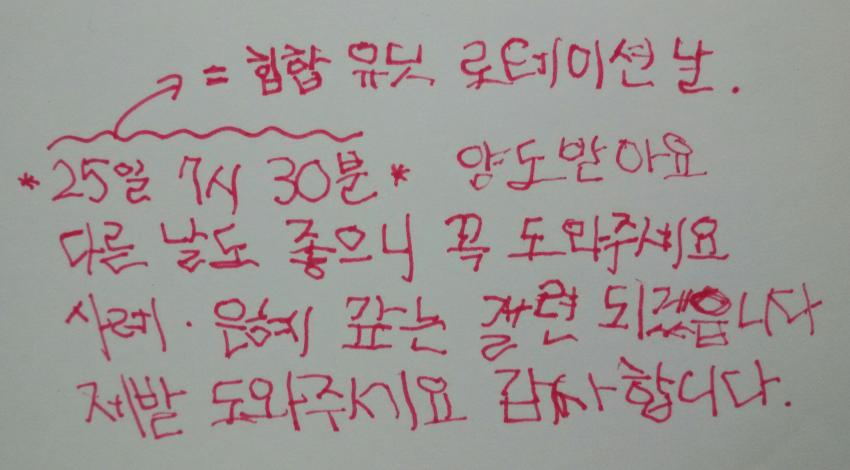 = 힙합 유닛 로테이션 날.
*25일 7시 30분* 양도받아요
다른 날도 좋으니 꼭 도와주세요
사례·은혜 갚는 절련 되겠읍니다
제발 도와주시기요 감사합니다.